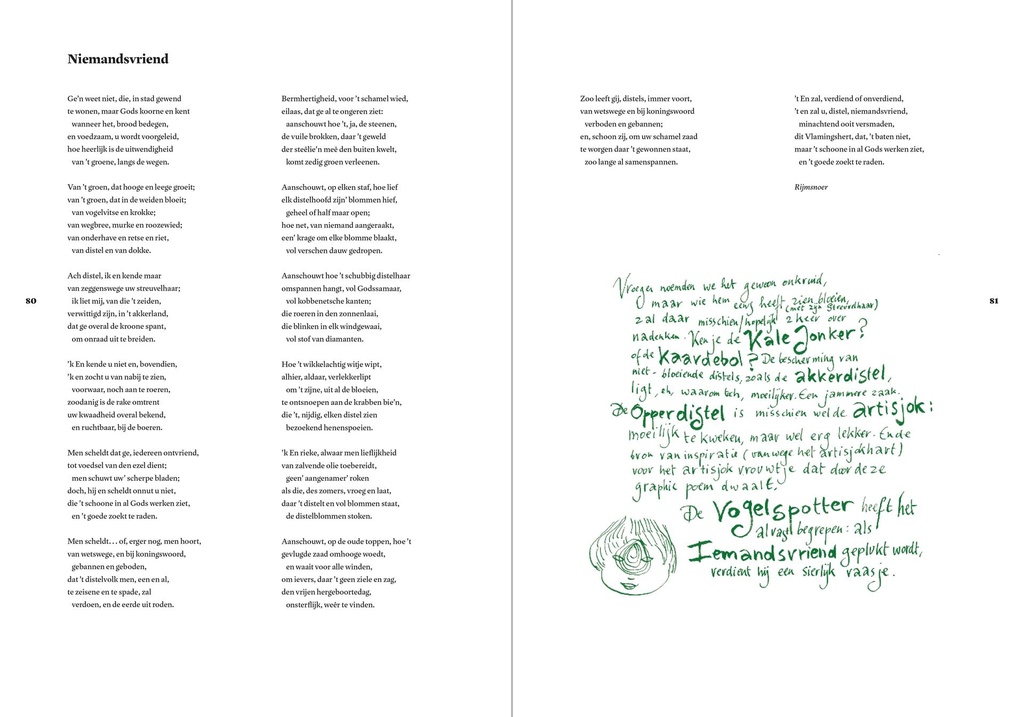 Niemandsvriend
Ge'n weet niet, die, in stad gewend
te wonen, maar Gods koorne en kent
wanneer het, brood bedegen,
en voedzaam, u wordt voorgeleid,
hoe heerlijk is de uitwendigheid
van 't groene, langs de wegen.
Van 't groen, dat hooge en leege groeit;
van 't groen, dat in de weiden bloeit;
van vogelvitse en krokke;
van wegbree, murke en roozewied;
van onderhave en retse en riet,
van distel en van dokke.
Ach distel, ik en kende maar
van zeggenswege uw streuvelhaar;
ik liet mij, van die 't zeiden,
verwittigd zijn, in 't akkerland,
dat ge overal de kroone spant,
om onraad uit te breiden.
'k En kende u niet en, bovendien,
'k en zocht u van nabij te zien,
voorwaar, noch aan te roeren,
zoodanig is de rake omtrent
uw kwaadheid overal bekend,
en ruchtbaar, bij de boeren.
Men scheldt dat ge, iedereen ontvriend,
tot voedsel van den ezel dient;
men schuwt uw' scherpe bladen;
doch, hij en scheldt onnut u niet,
die 't schoone in al Gods werken ziet,
en 't goede zoekt te raden.
Men scheldt… of, erger nog, men hoort,
van wetswege, en bij koningswoord,
gebannen en geboden,
dat 't distelvolk men, een en al,
te zeisene en te spade, zal
verdoen, en de eerde uit roden.
80
Bermhertigheid, voor 't schamel wied,
eilaas, dat ge al te ongeren ziet:
aanschouwt hoe 't, ja, de steenen,
de vuile brokken, daar 't geweld
der steêlie'n meê den buiten kwelt,
komt zedig groen verleenen.
Aanschouwt, op elken staf, hoe lief
elk distelhoofd zijn' blommen hief,
geheel of half maar open;
hoe net, van niemand aangeraakt,
een' krage om elke blomme blaakt,
vol verschen dauw gedropen.
Aanschouwt hoe 't schubbig distelhaar
omspannen hangt, vol Godssamaar,
vol kobbenetsche kanten;
die roeren in den zonnenlaai,
die blinken in elk windgewaai,
vol stof van diamanten.
Hoe 't wikkelachtig witje wipt,
alhier, aldaar, verlekkerlipt
om 't zijne, uit al de bloeien,
te ontsnoepen aan de krabben bie'n,
die 't, nijdig, elken distel zien
bezoekend henenspoeien.
'k En rieke, alwaar men lieflijkheid
van zalvende olie toebereidt,
geen' aangenamer' roken
als die, des zomers, vroeg en laat,
daar 't distelt en vol blommen staat,
de distelblommen stoken.
Aanschouwt, op de oude toppen, hoe 't
gevlugde zaad omhooge woedt,
en waait voor alle winden,
om ievers, daar 't geen ziele en zag,
den vrijen hergeboortedag,
onsterflijk, weêr te vinden.
Zoo leeft gij, distels, immer voort,
van wetswege en bij koningswoord
verboden en gebannen;
en, schoon zij, om uw schamel zaad
te worgen daar 't gewonnen staat,
zoo lange al samenspannen.
't En zal, verdiend of onverdiend,
't en zal u, distel, niemandsvriend,
minachtend ooit versmaden,
dit Vlamingshert, dat, 't baten niet,
maar 't schoone in al Gods werken ziet,
en 't goede zoekt te raden.
Rijmsnoer
Vroeger noemden we het gewoon onkruid,
maar wie hem eens heeft zien bloeien,
(met zijn streuvelhaar)
zal daar misschien/hopelijk 2 keer over
nadenken. Ken je de Kale Jonker?
of de Kaardebol? De bescherming van
niet-bloeiende distels, zoals de akkerdistel,
ligt, eh, waarom toch, moeilijker. Een jammere zaak.
De Opperdistel is misschien wel de artisjok:
moeilijk te kweken, maar wel erg lekker. En de
bron van inspiratie (vanwege het artisjokhart)
voor het artisjok vrouwtje dat door deze
graphic poem dwaalt.
De Vogelspotter heeft het
al vast begrepen: als
Iemandsvriend geplukt wordt,
verdient hij een sierlijk vaasje.
81